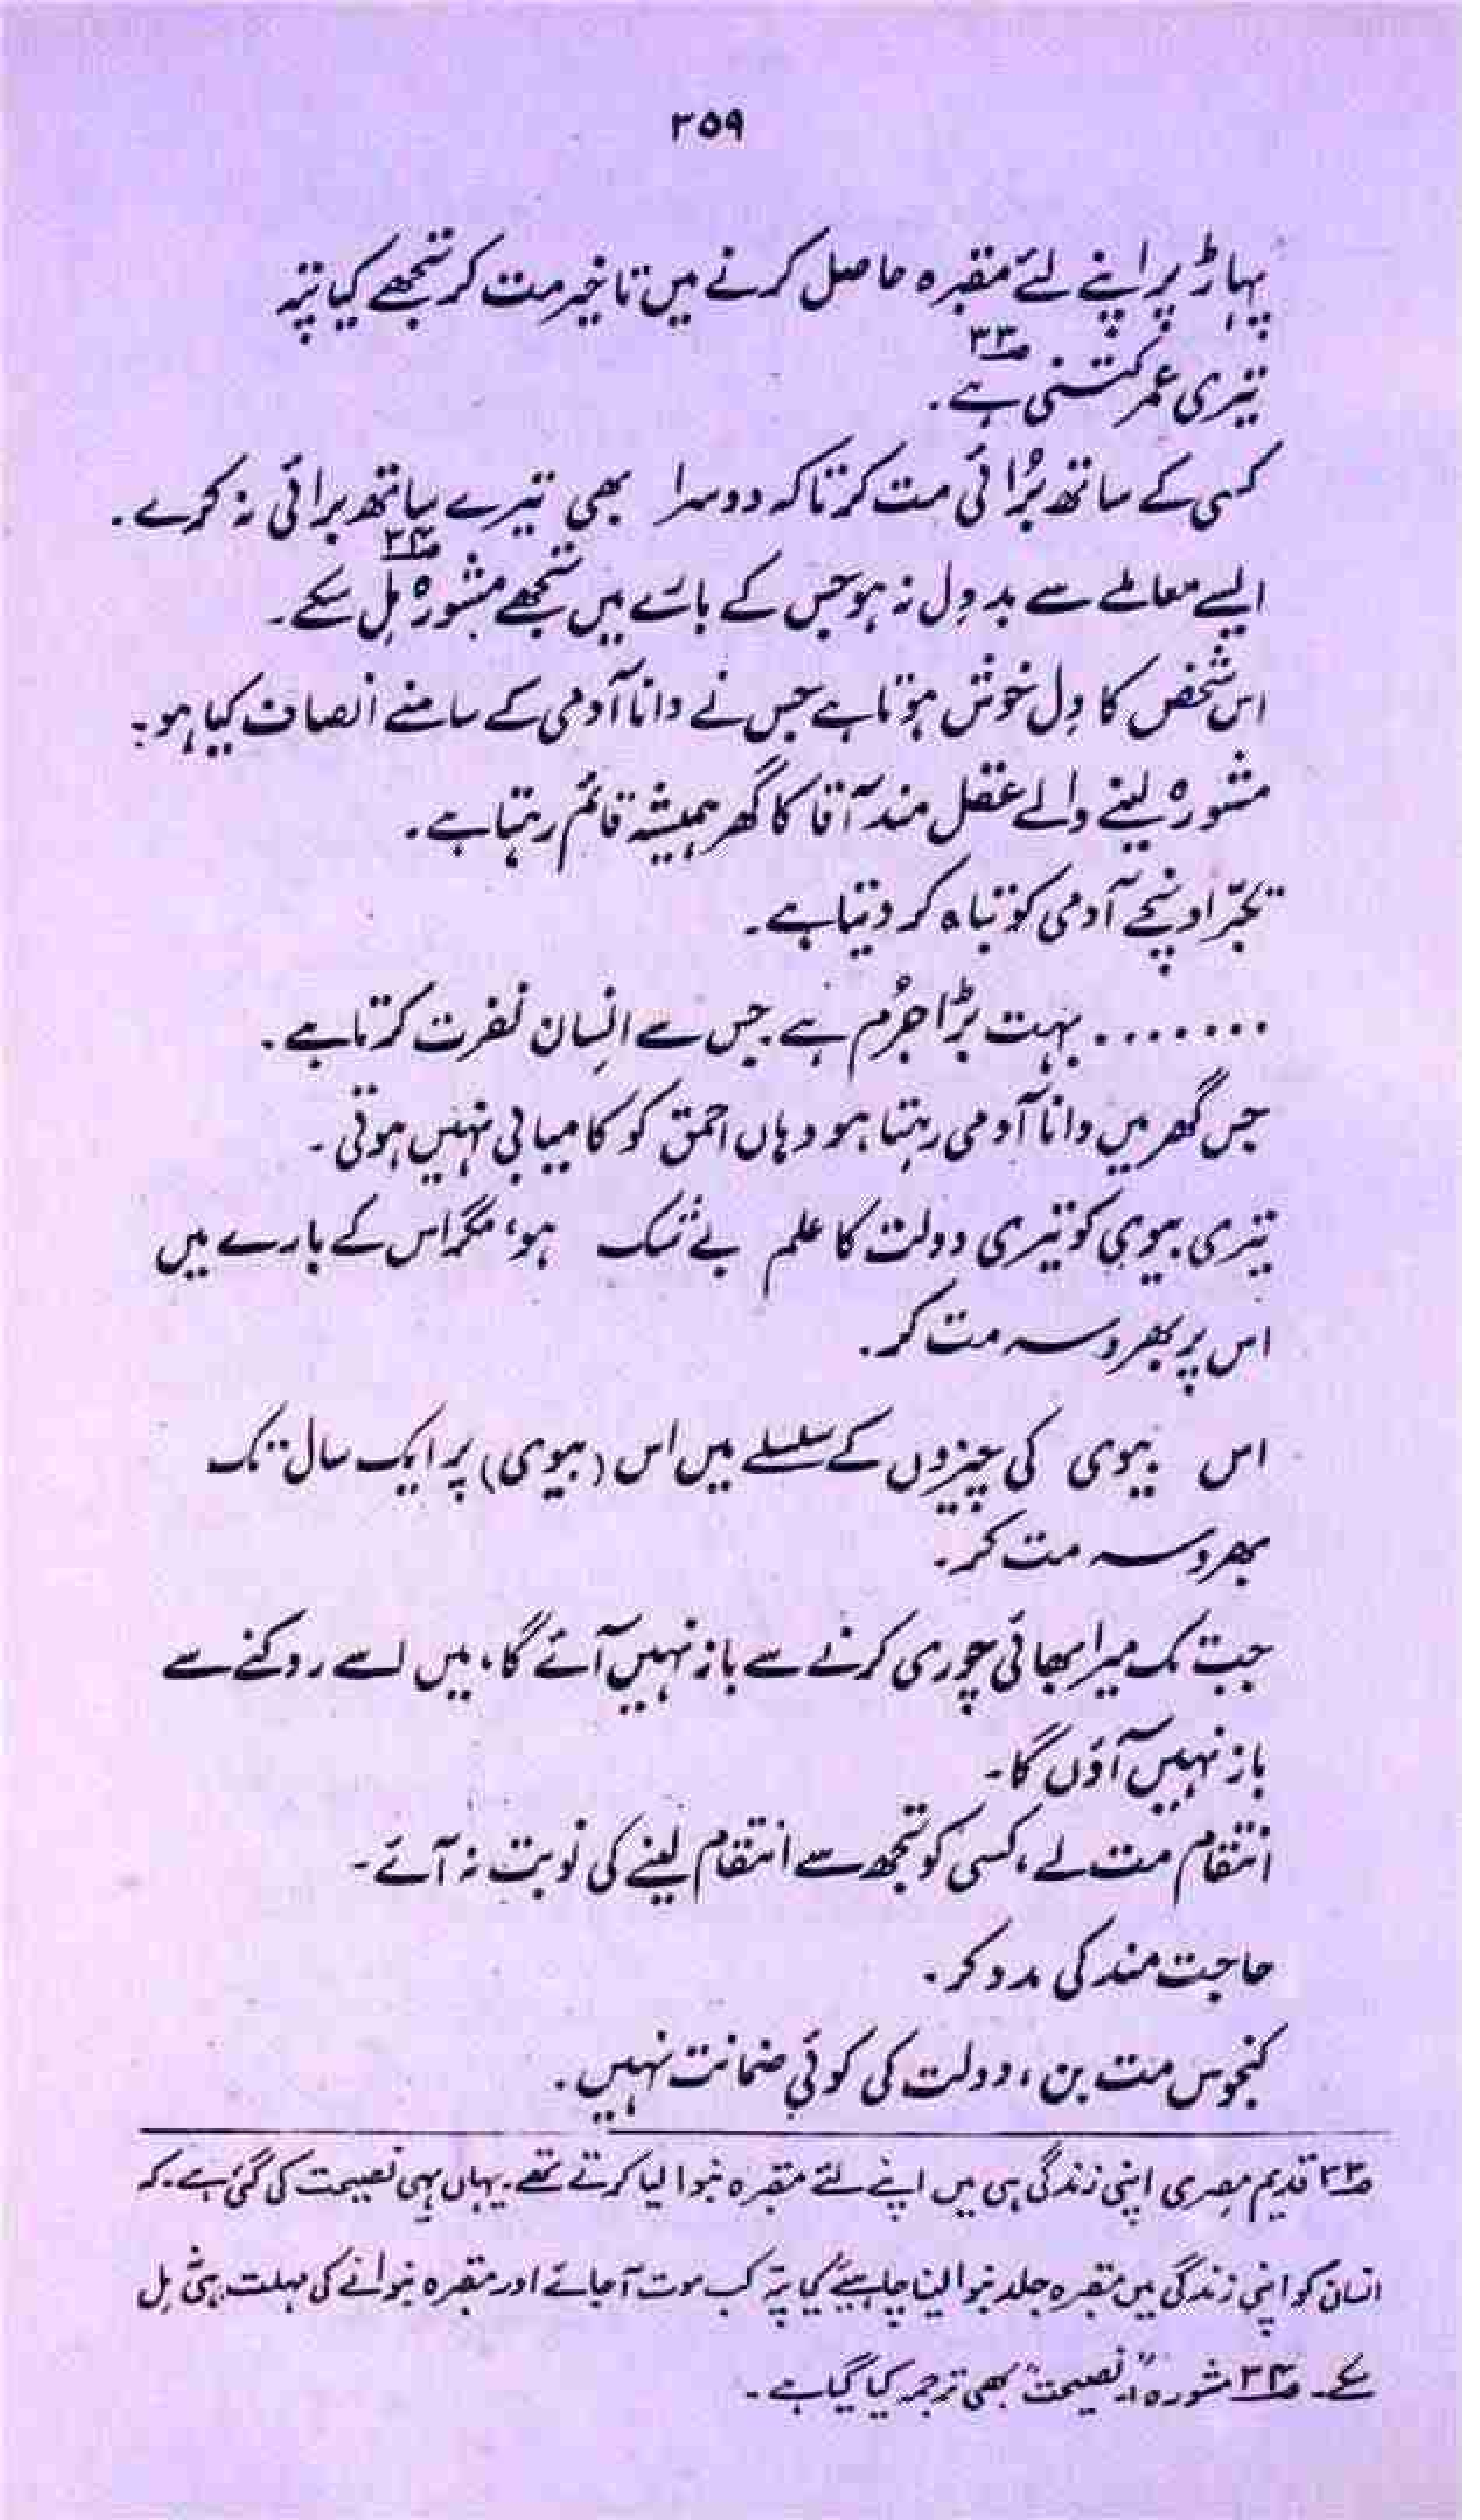 ۳۵۹
پہاڑ پر اپنے لئے مقبرہ حاصل کرنے میں تاخیر مت کر تجھے کیا پتہ
تیری عمر کتنی ہے۔ ۳۳؎
کسی کے ساتھ بُرائی مت کر تاکہ دوسرا بھی تیرے ساتھ برائی نہ کرے۔
ایسے معاملے سے بد دِل نہ ہو جس کے بارے میں تجھے مشورہ ۳۴؎ مِل سکے۔
اس شخص کا دِل خوش ہوتا ہے جس نے دانا آدمی کے سامنے انصاف کیا ہو۔
مشورہ لینے والے عقل مند آقا کا گھر ہمیشہ قائم رہتا ہے۔
تکبّر اونچے آدمی کو تباہ کر دیتا ہے۔
....... بہت بڑا جُرم ہے جس سے انسان نفرت کرتا ہے۔
جس گھر میں دانا آدمی رہتا ہو وہاں احمق کو کامیابی نہیں ہوتی۔
تیری بیوی کو تیری دولت کا علم بے شک ہو، مگر اس کے بارے میں
اس پر بھروسہ مت کر۔
اس بیوی کی چیزوں کے سلسلے میں اس (بیوی) پر ایک سال تک
بھروسہ مت کر۔
جب تک میرا بھائی چوری کرنے سے باز نہیں آئے گا، میں اسے روکنے سے
باز نہیں آؤں گا۔
انتقام مت لے، کسی کو تجھ سے انتقام لینے کی نوبت نہ آئے۔
حاجت مند کی مدد کر۔
کنجوس مت بن، دولت کی کوئی ضمانت نہیں۔
۳۳؎ قدیم مصری اپنی زندگی ہی میں اپنے لئے مقبرہ بنوا لیا کرتے تھے۔ یہاں یہی نصیحت کی گئی ہے۔ کہ
انسان کو اپنی زندگی میں مقبرہ جلد بنوا لینا چاہیئے کیا پتہ کب موت آ جائے اور مقبرہ بنوانے کی مہلت ہی مِل
سکے۔ ۳۴؎ مشورہ: "نصیحت" بھی ترجمہ کیا گیا ہے۔